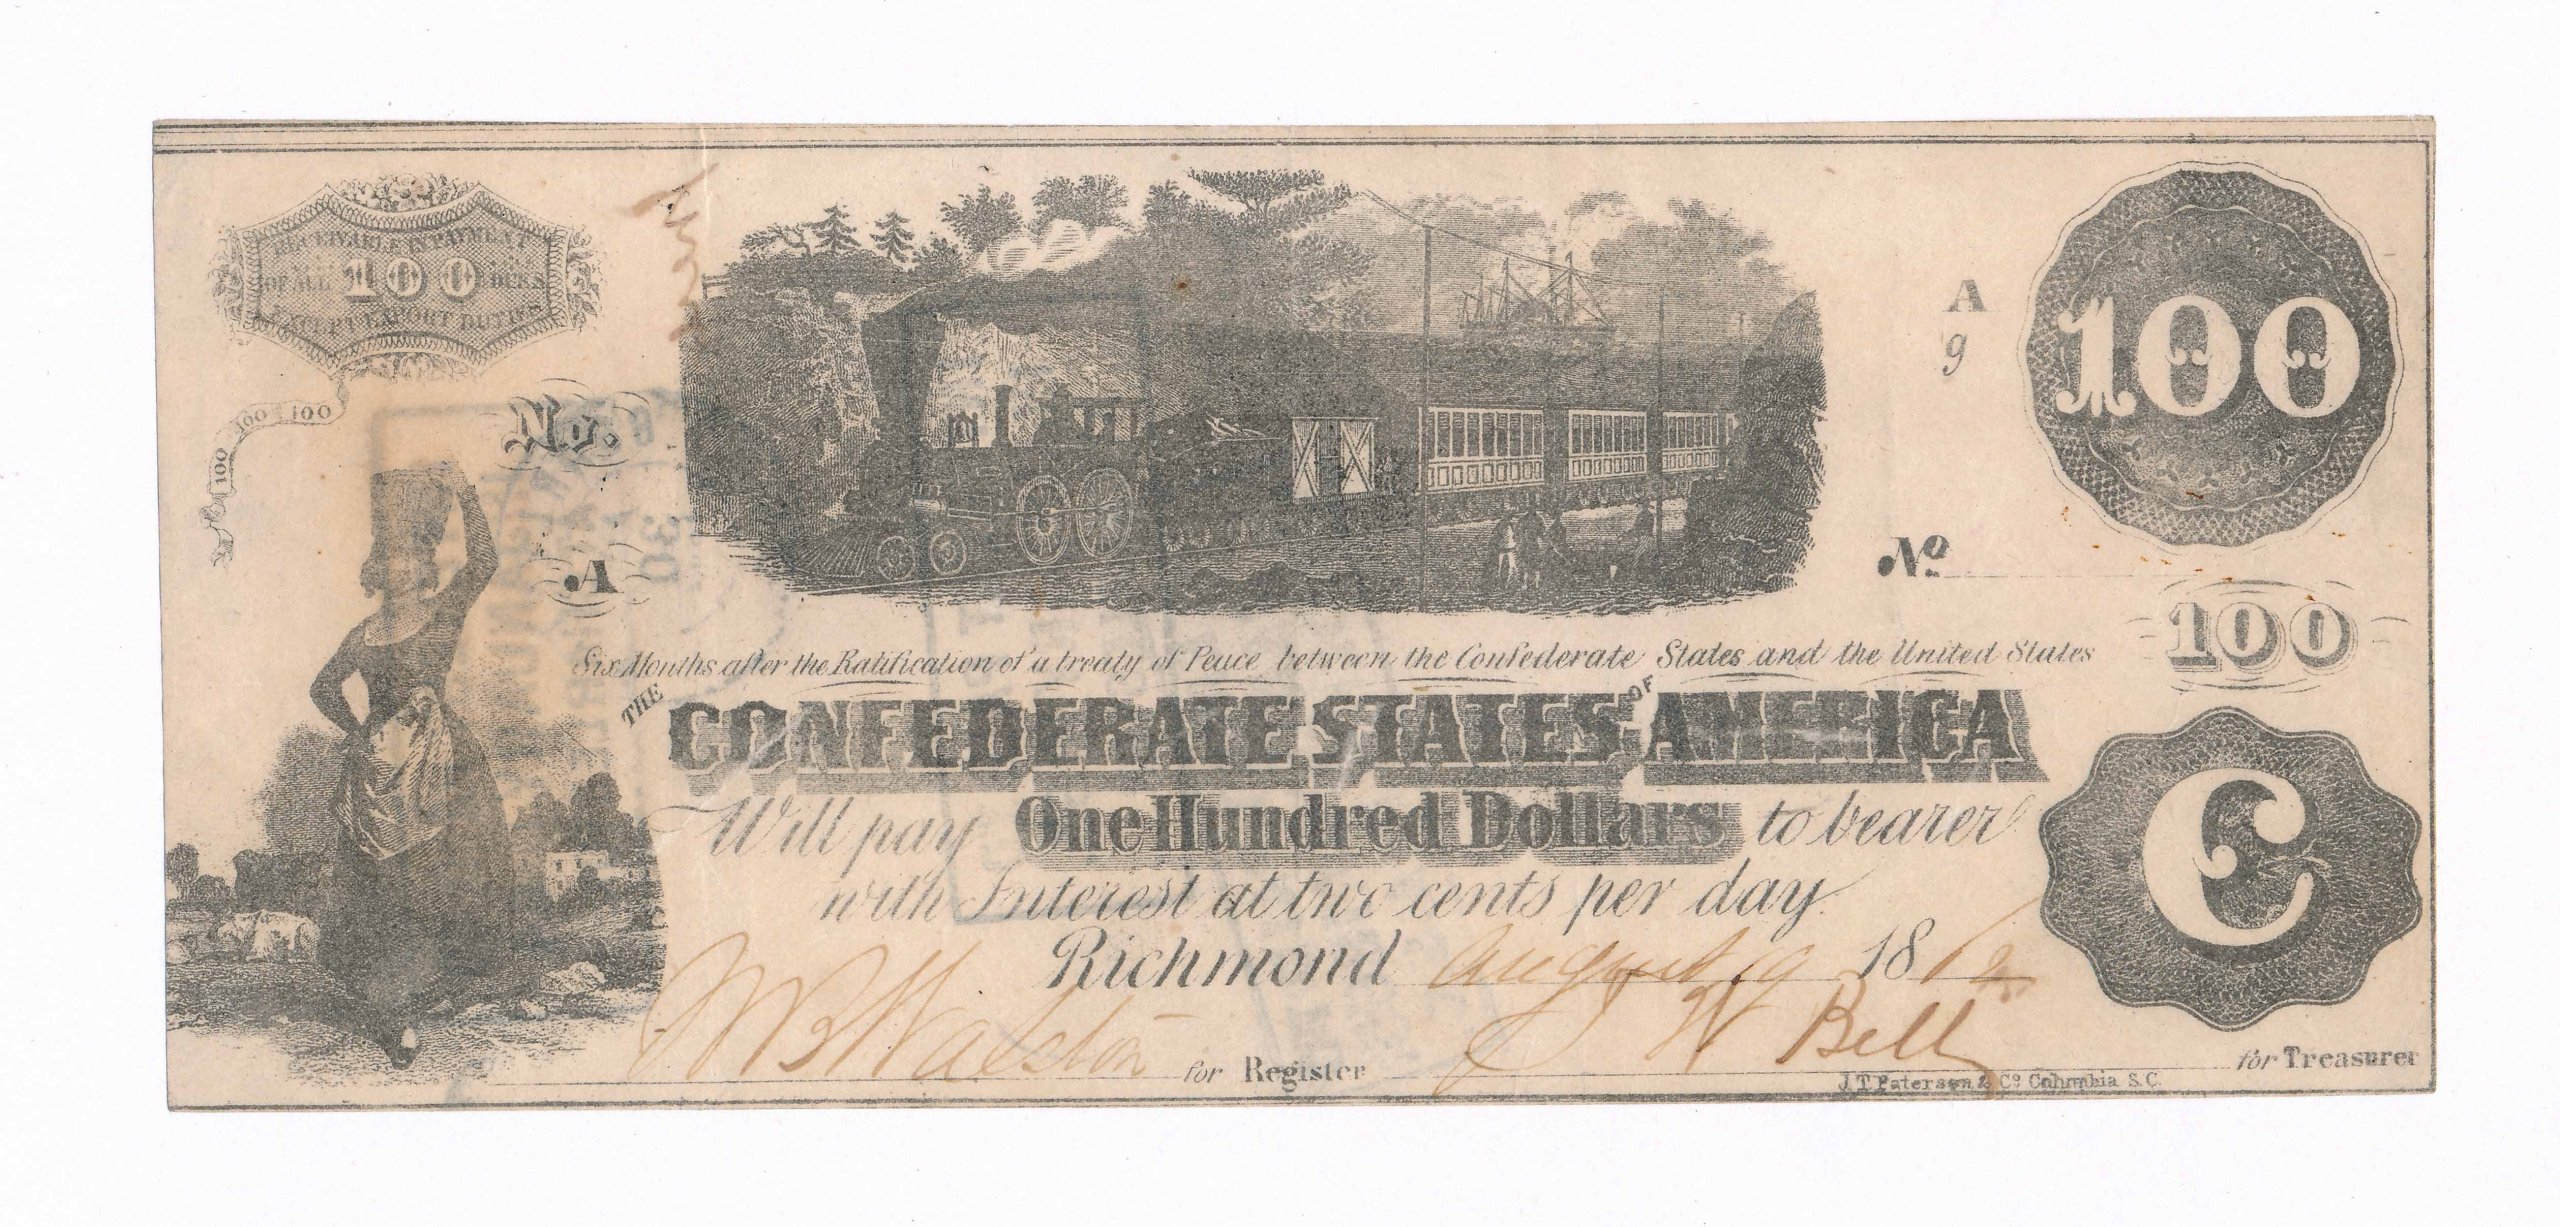 RECEIVABLE IN PAYMENT
OF ALL 100 DUES
EXCEPT EXPORT DUTIES
100 100 100
No.
A
A
9
100
No.
100
Six Months after the Ratification of a treaty of Peace between the Confederate States and the United States
THE CONFEDERATE STATES OF AMERICA
Will pay One Hundred Dollars to bearer
with Interest at two cents per day.
Richmond August 19 1862
C
W B Walston for Register
J W Bell for Treasurer
J.T. Paterson & Co. Columbia S.C.
30